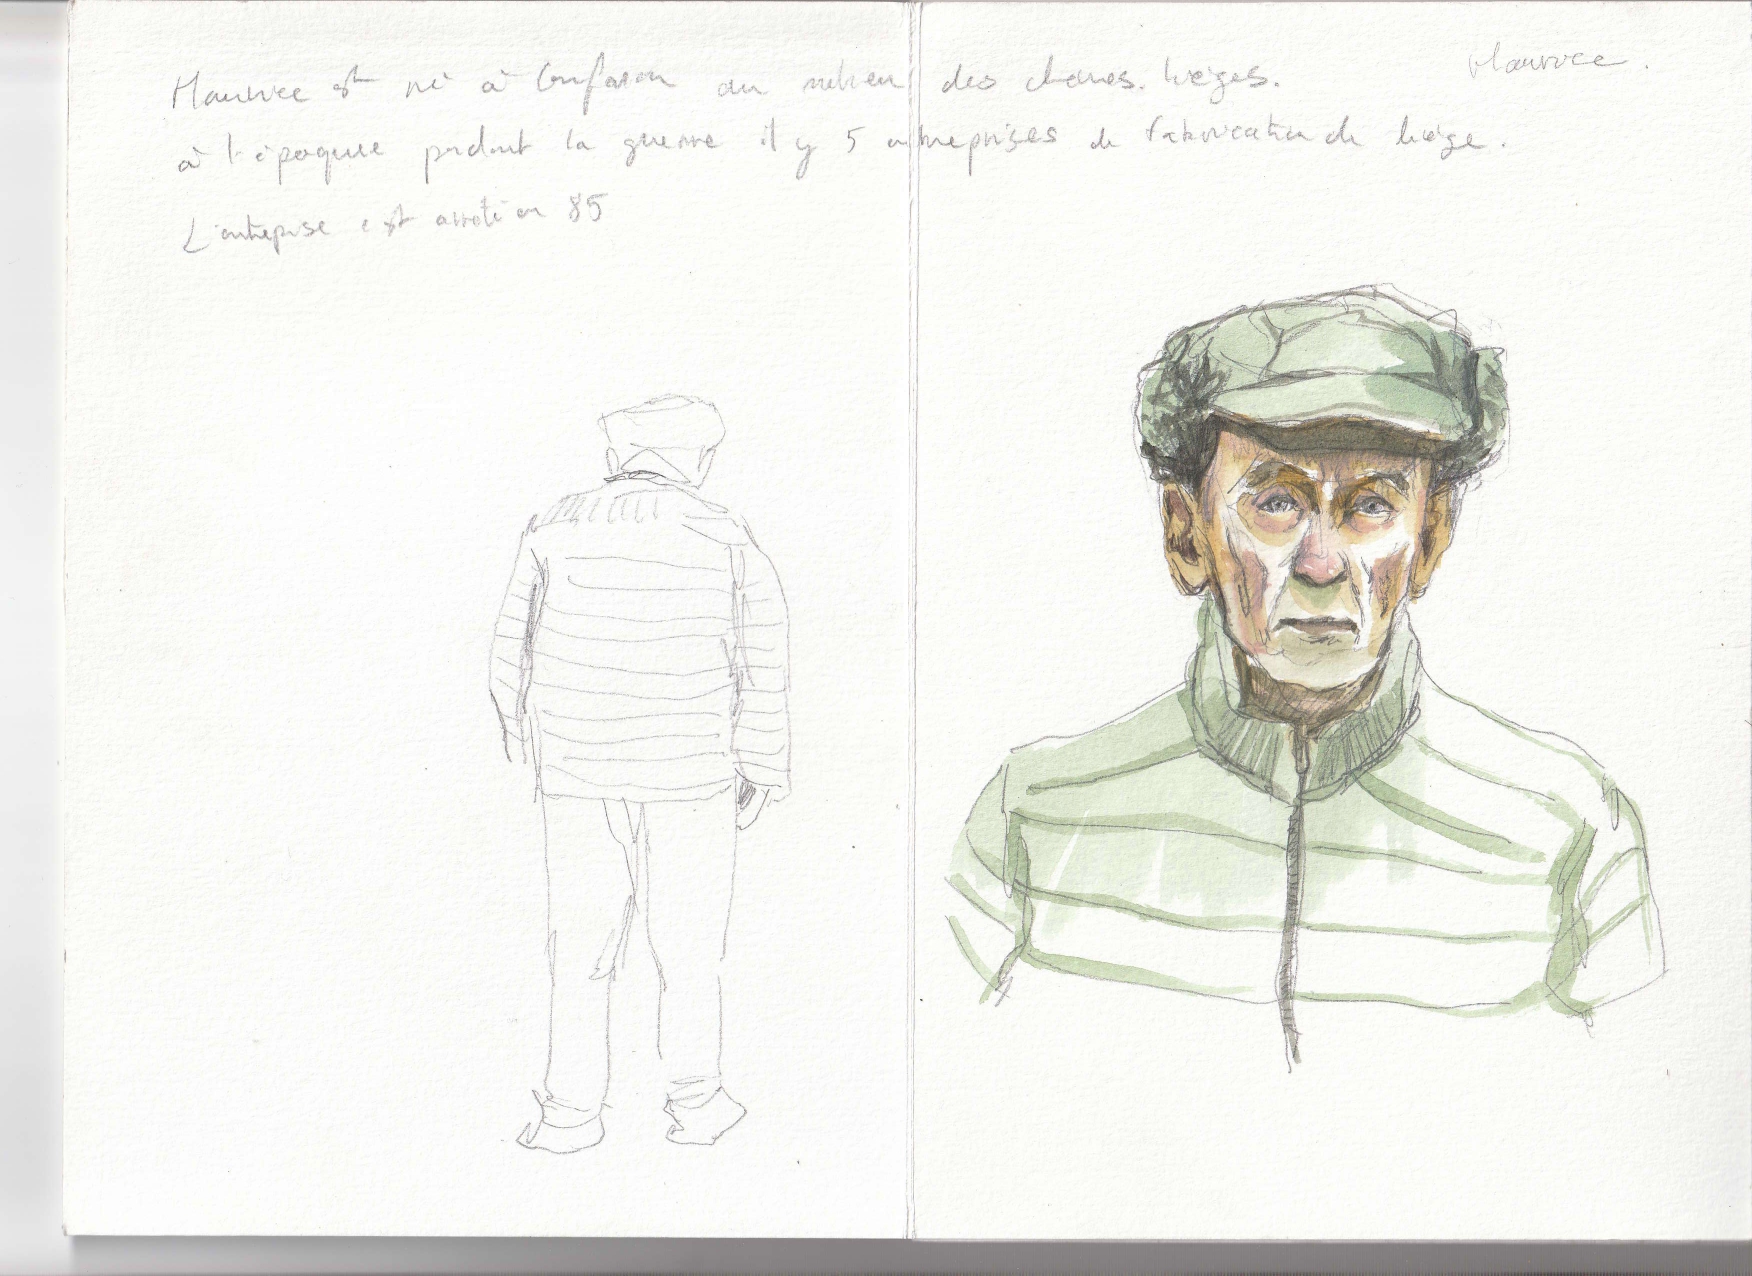 Maurice est né à Gonfaron au milieu des chênes. lièges.
Maurice.
à l'époque pendant la guerre il y 5 entreprises de fabrication de liège.
L'entreprise est arrêté en 85